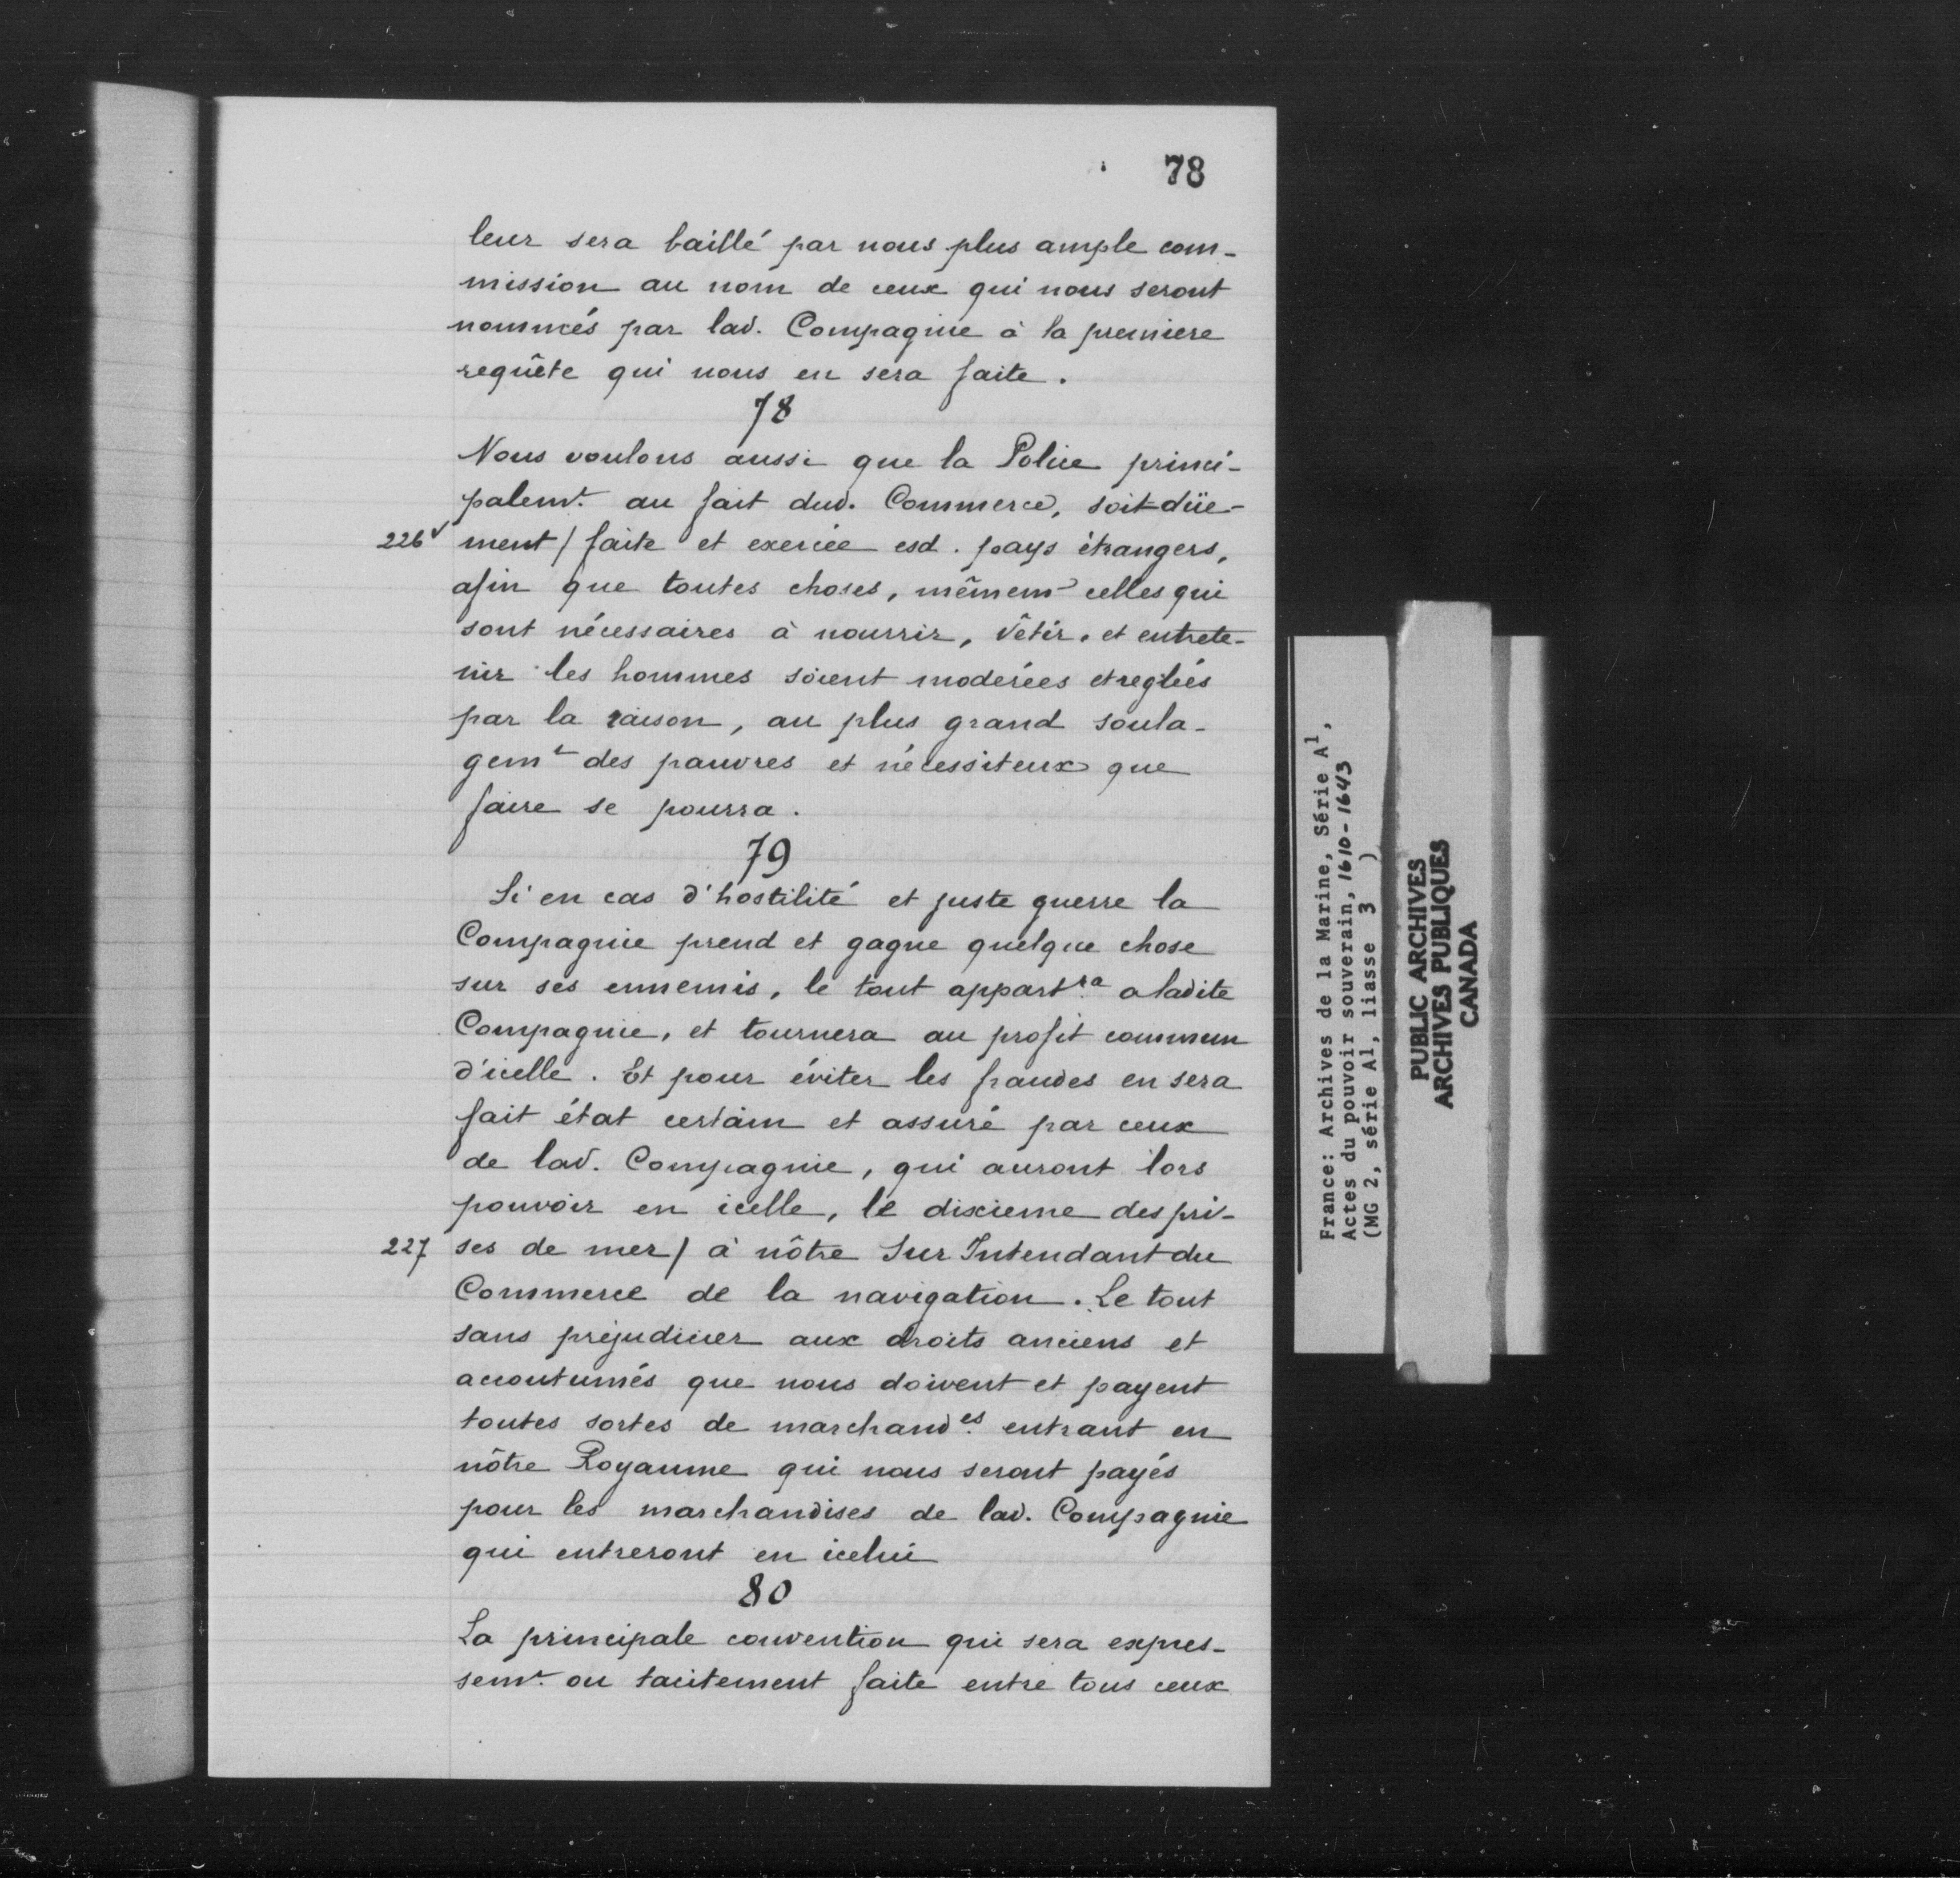 78
leur sera baillé par nous plus ample com-
mission au nom de ceux qui nous seront
nommés par lad. Compagnie à la premiere
requête qui nous en sera faite.
78
Nous voulons aussi que la Police princi-
palemt. au fait dud. Commerce, soit düe-
226v ment / faite et exercée esd. pays étrangers,
afin que toutes choses, mêmemt celles qui
sont nécessaires à nourrir, vêtir, et entrete-
nir les hommes soient moderées et reglées
par la raison, au plus grand soula-
gemt des pauvres et nécessiteux que
faire se pourra.
79
Si en cas d'hostilité et juste guerre la
Compagnie prend et gagne quelque chose
sur ses ennemis, le tout appartra a ladite
Compagnie, et tournera au profit commun
d'icelle. Et pour éviter les fraudes en sera
fait état certain et assuré par ceux
de lad. Compagnie, qui auront lors
pouvoir en icelle, le dixieme des pri-
227 ses de mer / à nôtre Sur Intendant du
Commerce de la navigation. Le tout
sans préjudicier aux droits anciens et
accoutumés que nous doivent et payent
toutes sortes de marchandes. entrant en
nôtre Royaume qui nous seront payés
pour les marchandises de lad. Compagnie
qui entreront en icelui
80
La principale convention qui sera expres-
semt. ou tacitement faite entre tous ceux
France: Archives de la Marine, Série A1,
Actes du pouvoir souverain, 1610-1643
(MG 2, série A1, liasse 3 )
PUBLIC ARCHIVES
ARCHIVES PUBLIQUES
CANADA